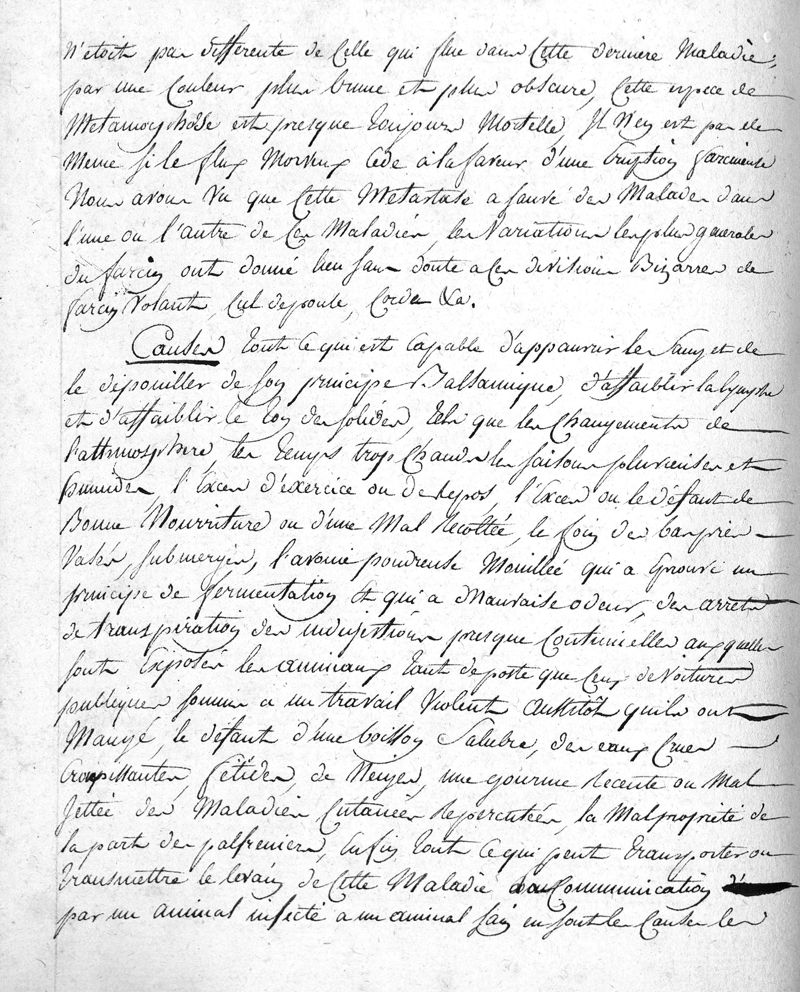 n'etoit pas differente de celle qui flue dans cette derniere Maladie,
par une Couleur plus brune et plus obscure, Cette espece de
Metamorphose est presque toujours Mortelle, Il N'en est pas de
Meme si le flux Morveux Cede a la faveur d'une Eruption farcineuse
Nous avons vu que Cette Metastase a sauvé des Malades dans
l'une ou l'autre de Ces Maladies, les Variations les plus generales
du farcin ont donné lieu sans doute a Ces divisions Bizarres de
farcin Volant, Cul de poule, Cordé &a.
Causes tout Ce qui est Capable d'appauvrir le Sang et de
le dépouiller de son principe Balsamique, d'affaiblir la lymphe
et d'affaiblir le ton des solides, tels que les Changements de
l'athmosphere, les temps trop Chauds les saisons pluvieuses et
humides, l'Excès d'exercice ou de Repos, l'Excès ou le défaut de
Bonne Nourriture ou d'une Mal Recoltée, le foin des bas prés
Vasés, submergés, l'avoine poudreuse Mouillée qui a Eprouvé un
principe de fermentation Et qui a Mauvaise odeur, des arrets
de transpiration des indigestions presque Continuelles auxquelles
sont Exposés les animaux tant de poste que Ceux de Voitures
publiques soumis a un travail Violent Aussitôt quils ont
Mangé, le défaut d'une boisson Salubre, des eaux Crues
Croupissantes, fétides, de Neiges, une gourme Recente ou Mal
Jettée des Maladies Cutanées Repercutées, la Malpropreté de
la part des palfreniers, Enfin tout Ce qui peut transporter ou
transmettre le levain de Cette Maladie Communication
par un animal infecté a un animal sain en sont les Causes les